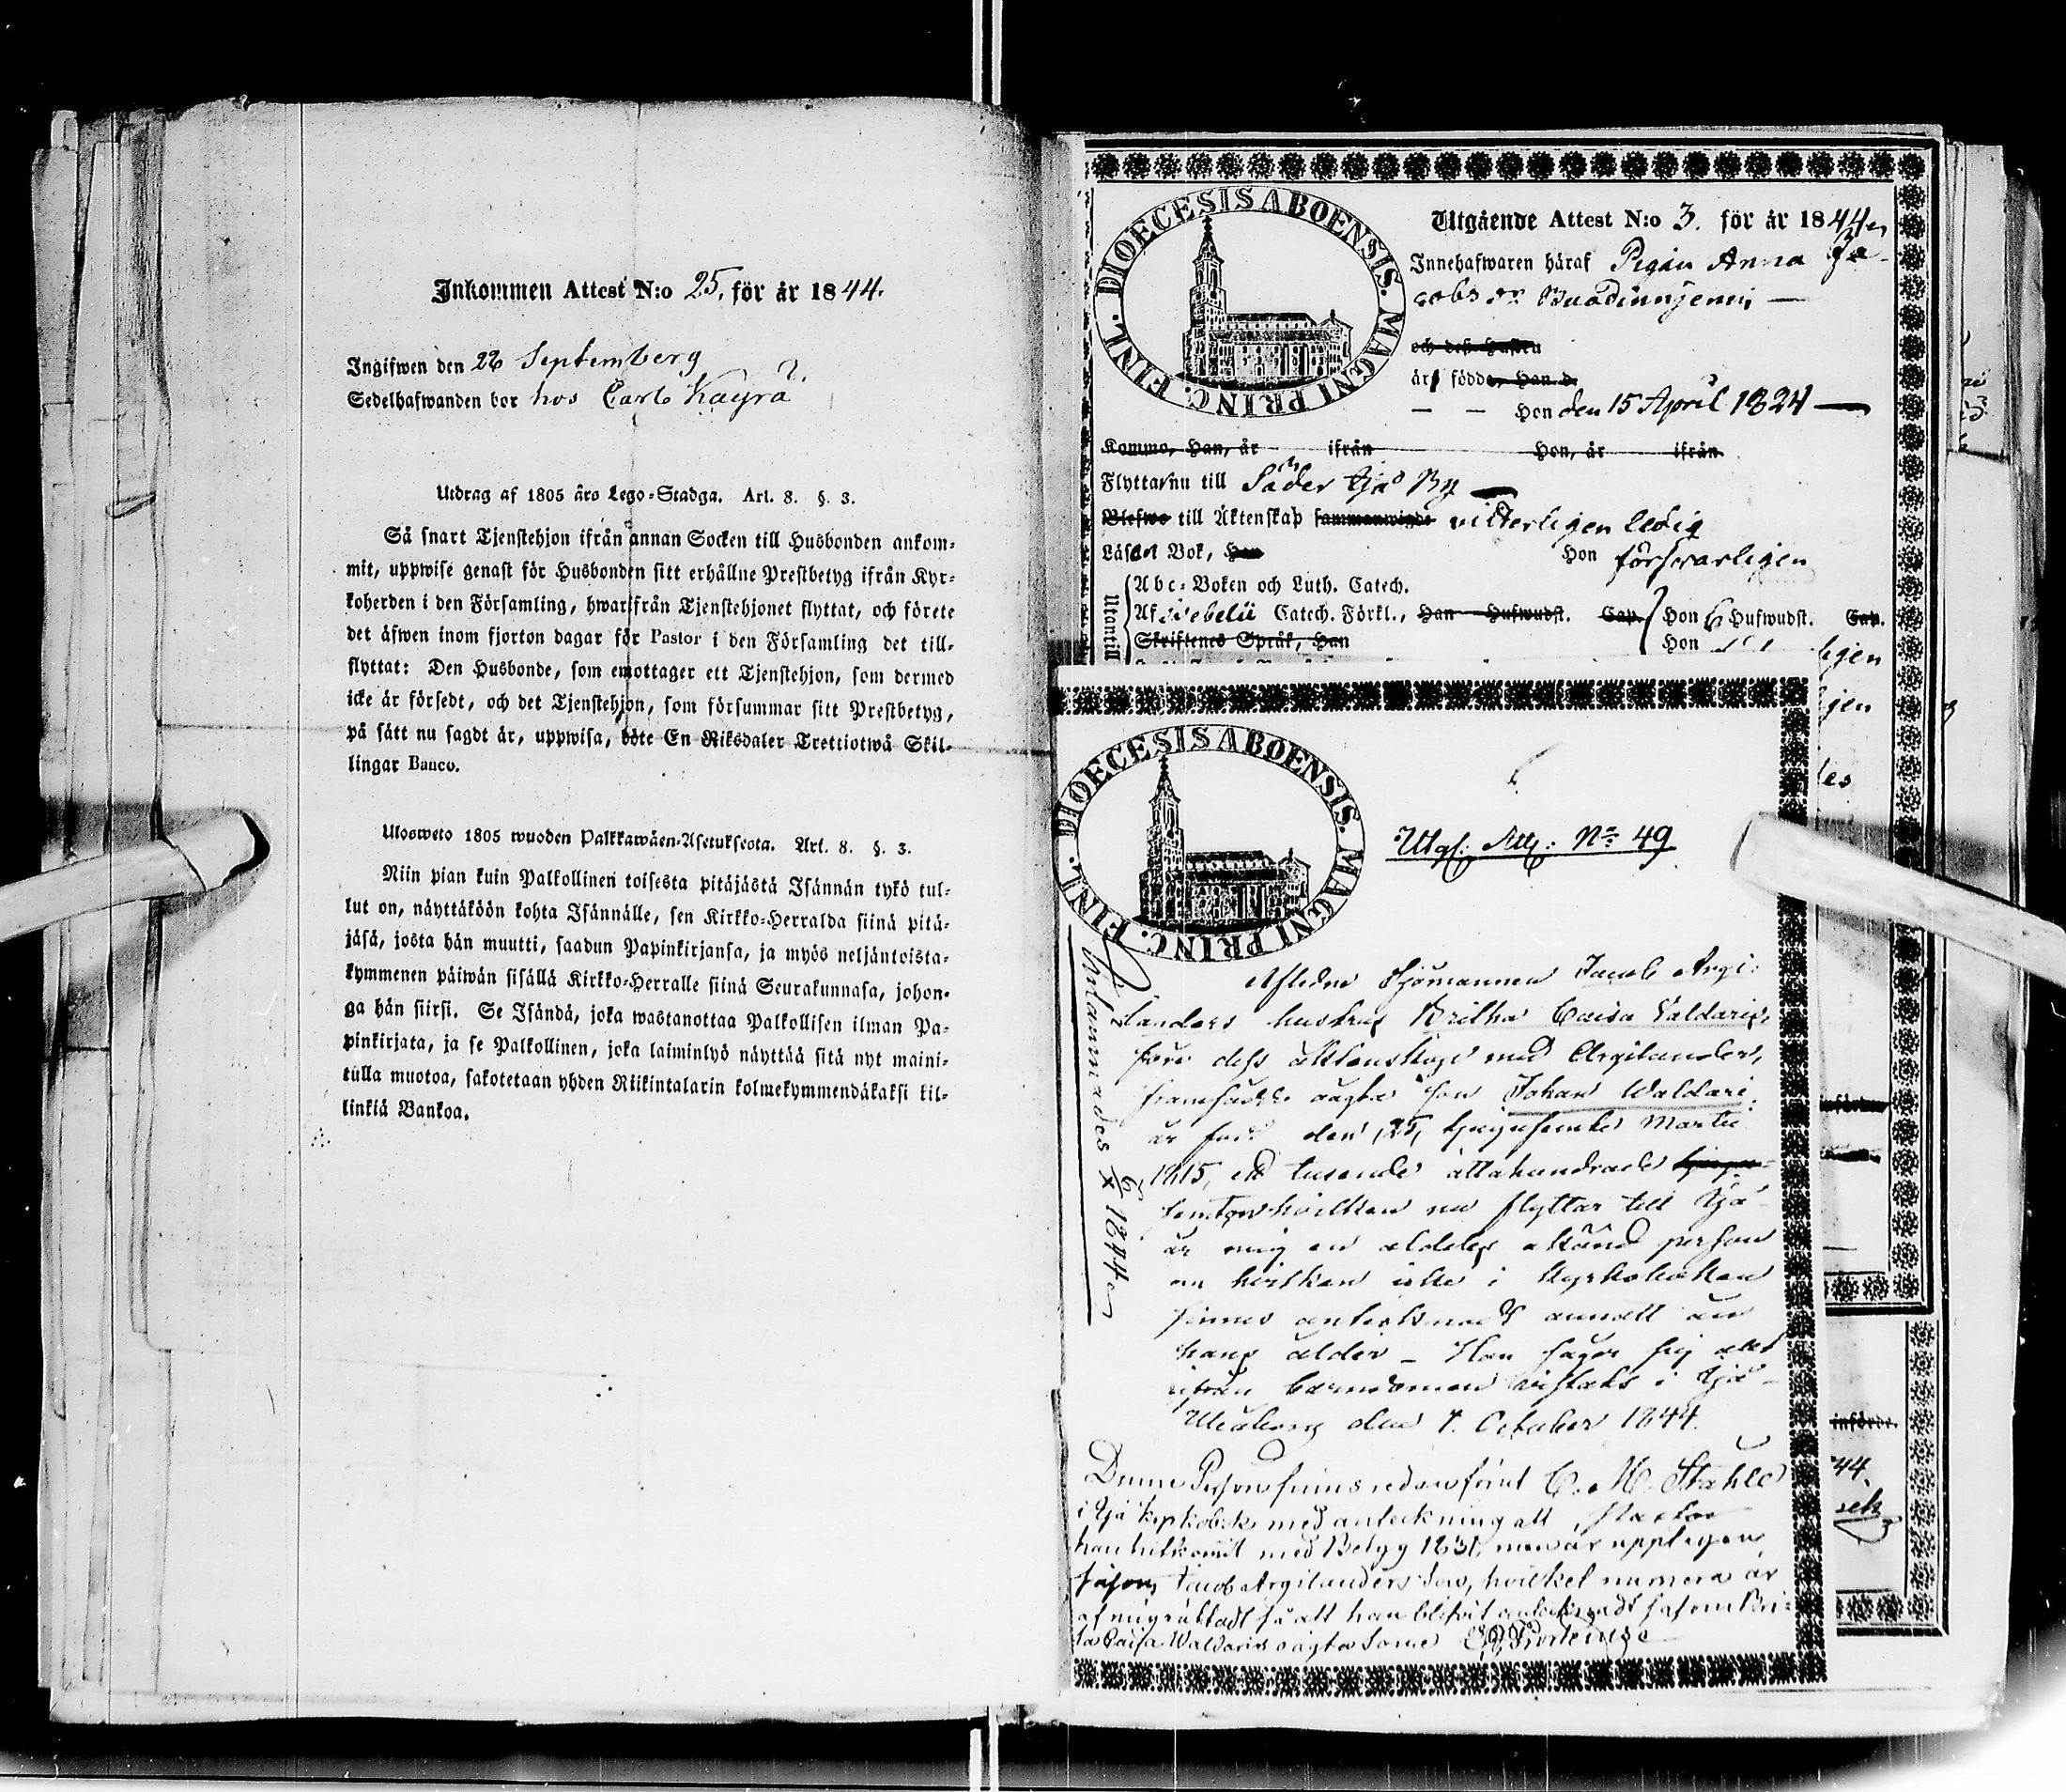 Inkommen Attest N:o 25, för år 1844.
Ingifwen den 26 Septemberg
Sedelhafwanden bor hos Carls Kayra
Utdrag af 1805 års Lego-Stadga. Art. 8. §. 3.
Så snart Tjenstehjon ifrån annan Socken till Husbonden ankom-
mit, uppwise genast för Husbonden sitt erhållne Prestbetyg ifrån Kyr-
koherden i den Församling, hwarifrån Tjenstehjonet flyttat, och förete
det äfwen inom fjorton dagar för Pastor i den Församling det till-
flyttat: Den Husbonde, som emottager ett Tjenstehjon, som dermed
icke är försedt, och det Tjenstehjon, som försummar sitt Prestbetyg,
på sätt nu sagdt är, uppwisa, böte En Riksdaler Trettiotwå Skil-
lingar Banco.
Ulosweto 1805 wuoden Palkkawäen-Asetuksesta. Art. 8. §. 3.
Niin pian kuin Palkollinen toisesta pitäjästä Isännän tykö tul-
lut on, näyttäköön kohta Isännälle, sen Kirkko-Herralda siinä pitä-
jäsä, josta hän muutti, saadun Papinkirjansa, ja myös neljäntoista-
kymmenen päiwän sisällä Kirkko-Herralle siinä Seurakunnasa, johon-
ga hän siirsi. Se Isändä, joka wastanottaa Palkollisen ilman Pa-
pinkirjata, ja se Palkollinen, joka laiminlyö näyttää sitä nyt maini-
tulla muotoa, sakotetaan yhden Riikintalarin kolmekymmendäkaksi kil-
linkiä Bankoa.
DIOECESIS ABOENSIS. MAGNI PRINC. FINL.
Utgående Attest N:o 3. för år 1844
Innehafwaren häraf Pigan Anna Ja-
cobs dr
och dess Hustru
är födde, Han d.
— — Hon den 15 April 1824 —
Komme, Han, år ifrån Hon, år ifrån
Flyttar nu till Söder Ijo By —
Blefwo till Äktenskap sammanwigde vitterligen ledig
Läser Bok, Han Hon försvarligen
Utantill
Abc-Boken och Luth. Catech.
Af Svebelii Catech. Förkl., Han Hufwudst. Cap. Hon 6 Hufwudst. Cap.
Skriftenes Språk, Han Hon
ligen
DIOECESIS ABOENSIS. MAGNI PRINC. FINL.
Utgf: Att: No 49
Aflidne Sjömannen Jacob Argi-
landers hustrus Britha Caisa Valdaris
före dess äktenskap med Argilander,
framfödde oägta son Johan Waldari
är född den 25, tjugufemte Martii
1815, ett tusende åttahundrade
femton hvilken nu flyttar till Ijo
är mig en aldeles okänd person
om hvilken icke i Kyrkoboken
finnes antecknadt annatt än
hans ålder – Han säger sig alt
ifrån barndomen vistats i Ijo –
Uleåborg den 4. October 1844.
C. M. Stähle
Pastor
Denne Person finns redan förut
i Ijo kyrkobok med anteckning att
han hitkomit med Betyg 1831, men är upptagen
såsom Jacob Argilanders Son, hvilket numera är
af mig rättadt så att han blifvit antecknadt såsom Bri-
ta Caisa Waldaris oägta Son
6/X 1844
införde.
44.